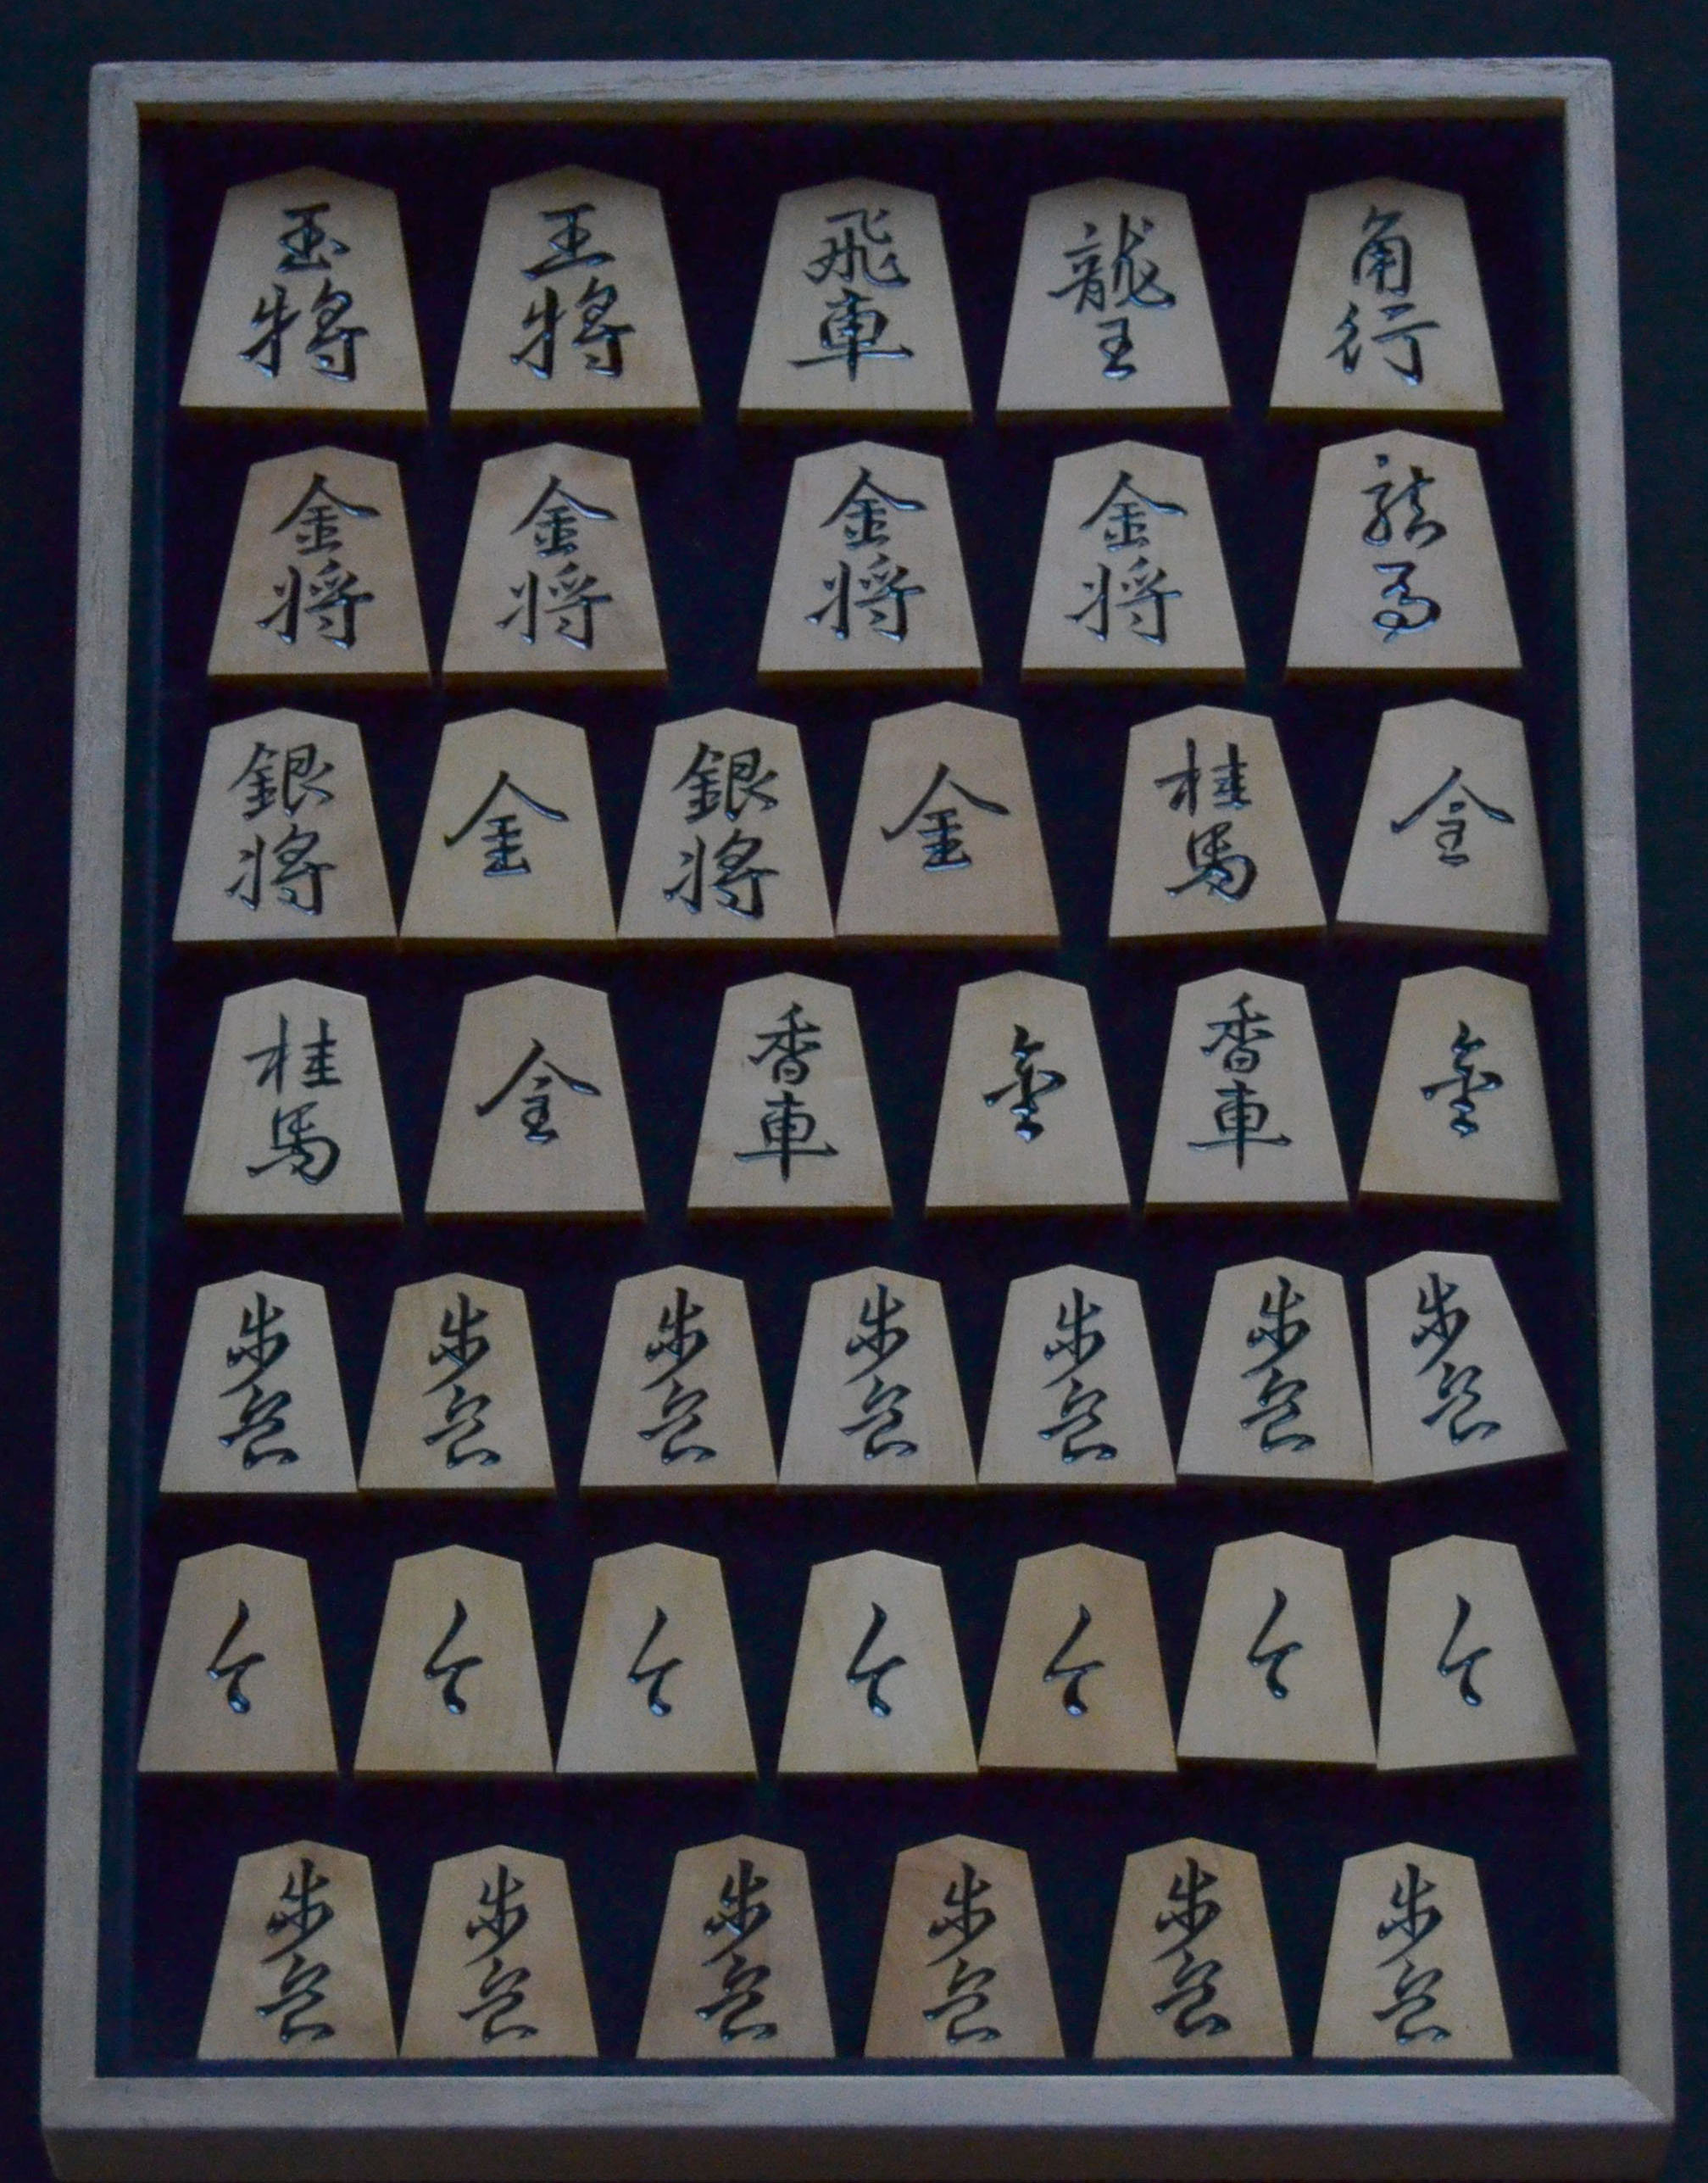 玉将 王将 飛車 龍王 角行
金将 金将 金将 金将 龍馬
銀将 金 銀将 金 桂馬 金
桂馬 金 香車 金 香車 金
歩兵 歩兵 歩兵 歩兵 歩兵 歩兵 歩兵
と と と と と と と
歩兵 歩兵 歩兵 歩兵 歩兵 歩兵